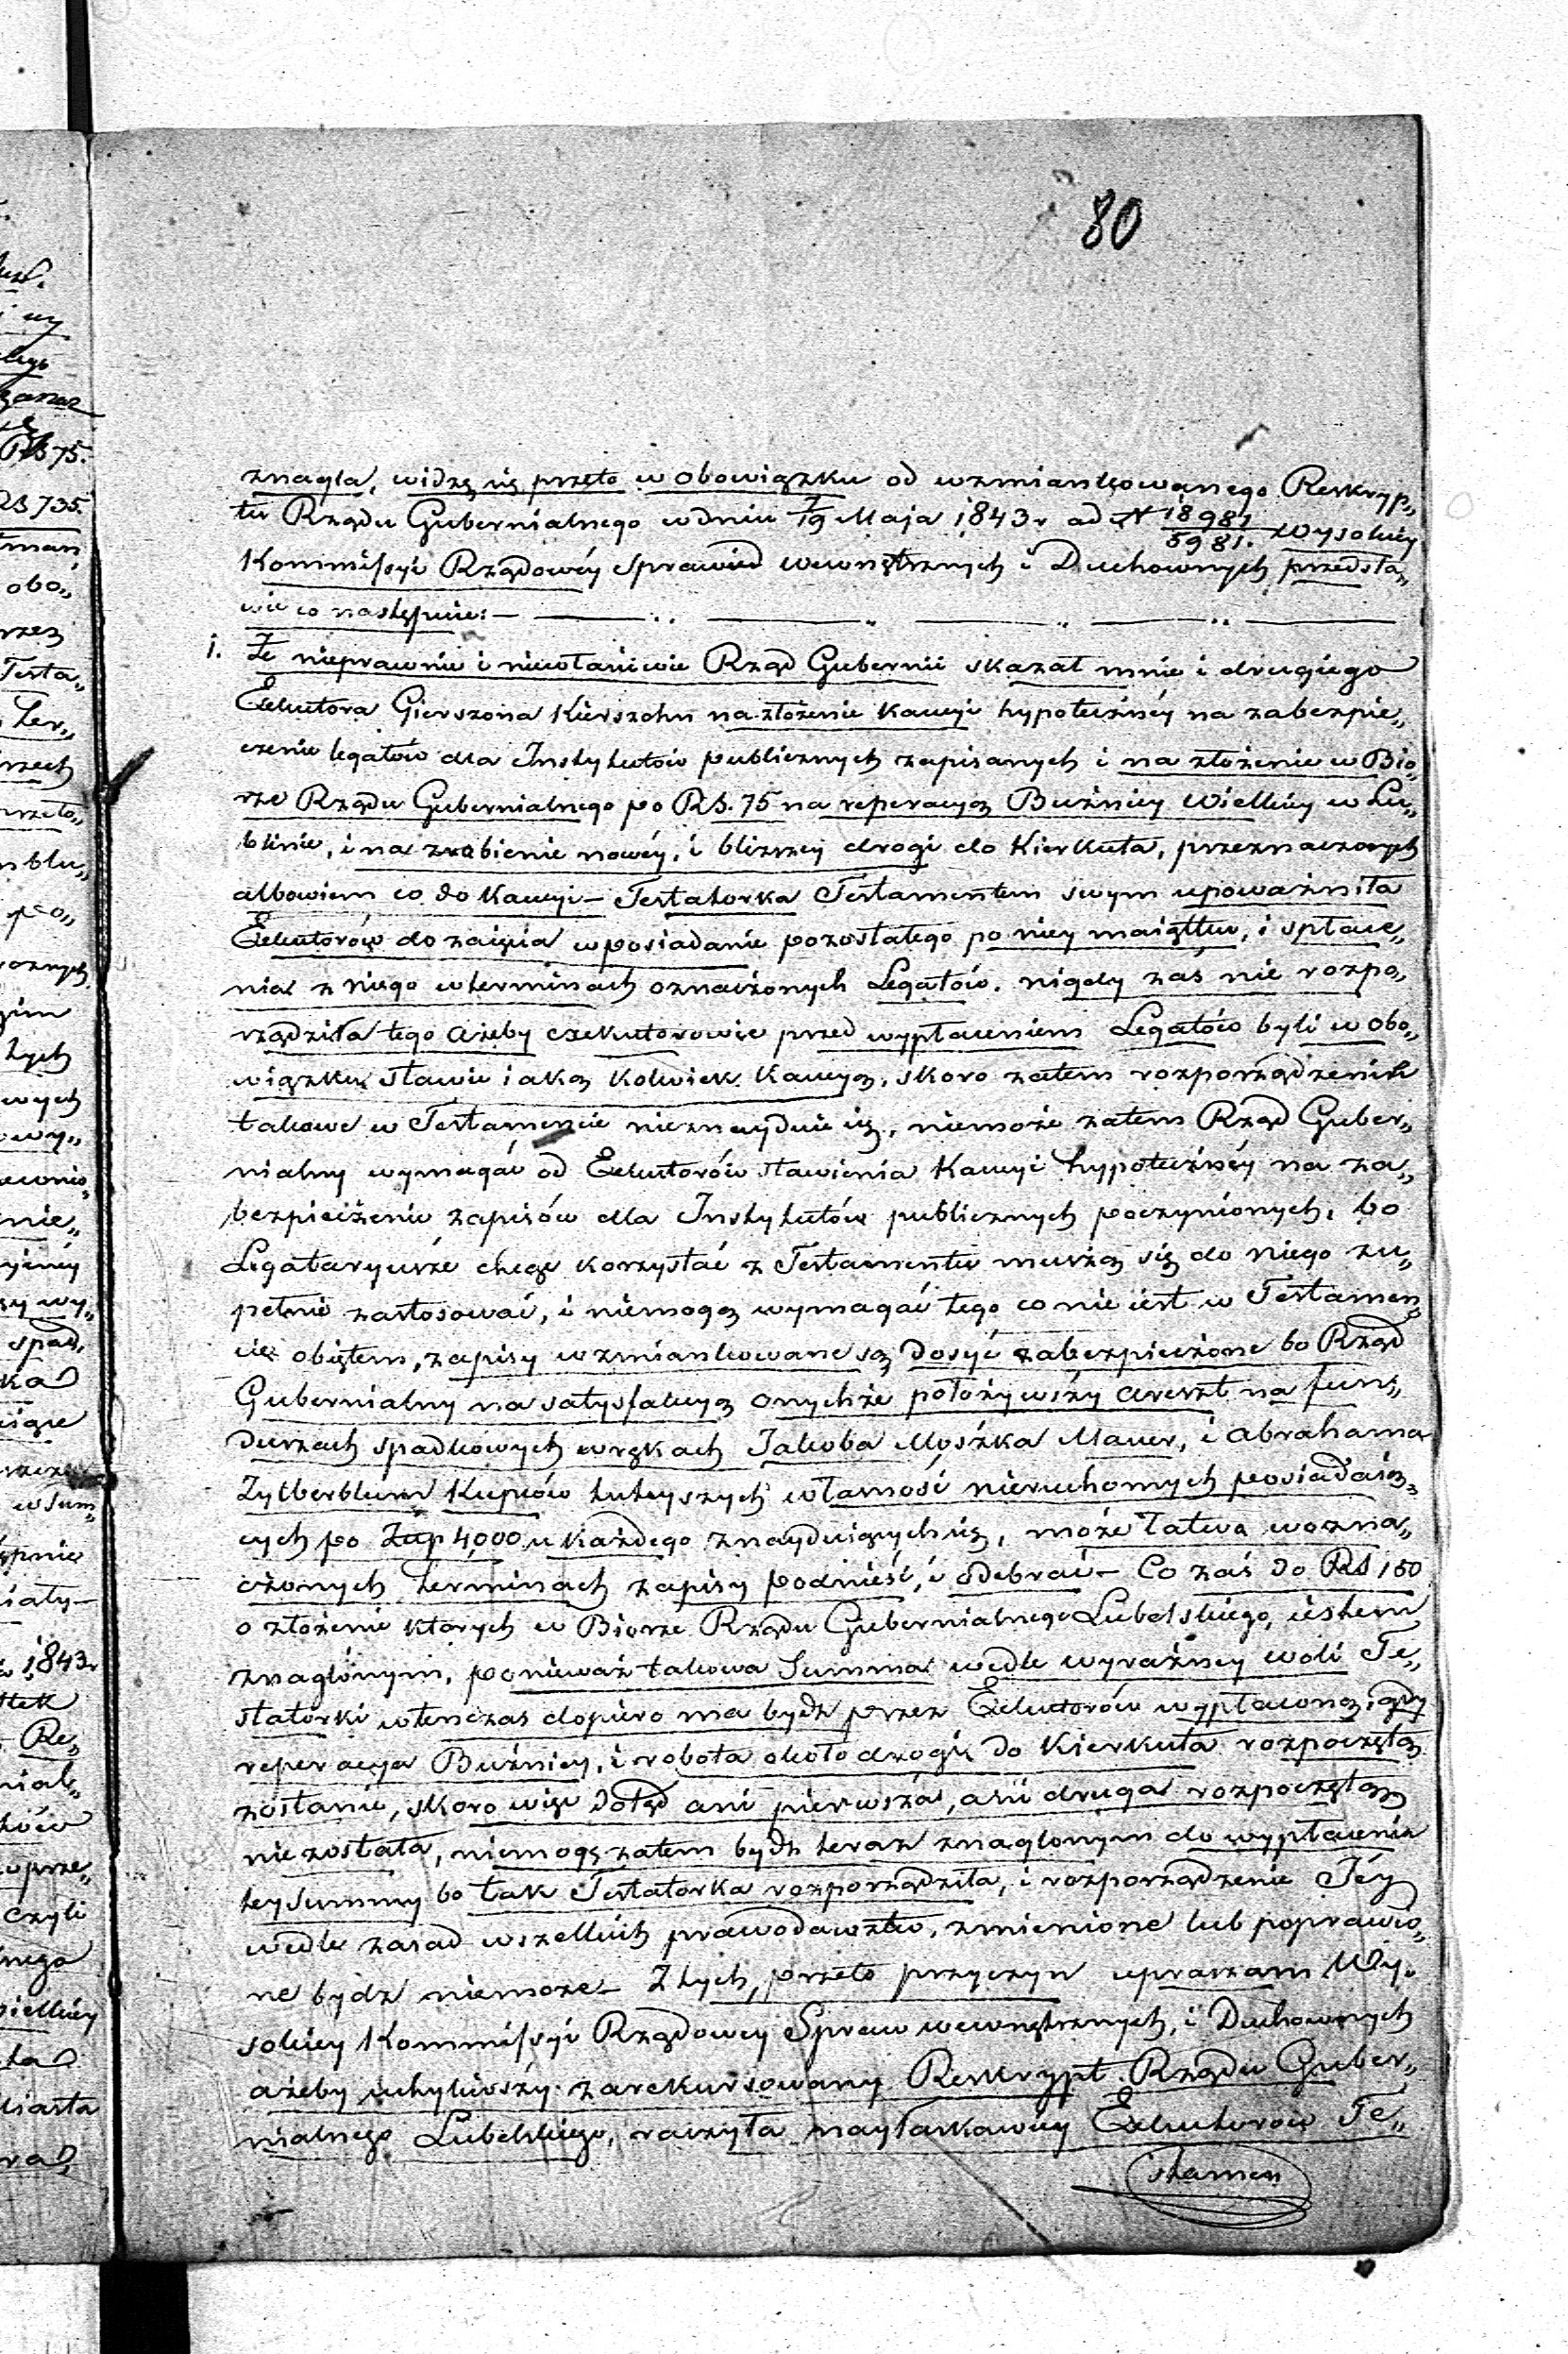 80
znagla, widzę się przeto w obowiązku od wzmiankowanego Reskryp„
tu Rządu Gubernialnego w dniu 7/19 Maja 1843 r ad N 18981/5981. Wysokiey
Kommissyi Rządowéy Spraw wewnętrznych i Duchownych przedsta„
wić co następuie: —
1. Że nieprawnie i niewłaściwie Rząd Gubernii skazał mnie i drugiego
Exekutora Gierszona Kierszohn na złożenie kaucyi hypoteczney na zabezpie„
czenie legatów dla Instytutów publicznych zapisanych i na złożenie w Bió„
rze Rządu Gubernialnego po RS. 75 na reperacyą Bużnicy Wielkiey w Lu„
blinie, i na zrobienie nowéy, i bliższey drogi do Kierkuta, przeznaczonych
albowiem co do kaucyi — Testatorka Testamentem swym upoważniła
Exekutorów do zaięcia w posiadanie pozostałego po niey maiątku, i spłace„
nia z niego w terminach oznaczonych Legatów. nigdy zaś nie rozpo„
rządziła tego ażeby exekutorowie przed wypłaceniem Legatów byli w obo„
wiązku stawić iaką kolwiek kaucyą, skoro zatem rozporządzenie
takowe w Testamencie nieznayduie się, niemoże zatem Rząd Guber„
nialny wymagać od Exekutorów stawienia Kaucyi hypoteczney na za„
bezpieczenie zapisów dla Instytutów publicznych poczynionych, bo
Legataryusze chcąc korzystać z Testamentu muszą się do niego zu„
pełnie zastosować, i niemogą wymagać tego co nie iest w Testamen„
cie obiętem, zapisy wzmiankowane są dosyć zabezpieczone bo Rząd
Gubernialny na satysfakcyą onychże położywszy areszt na fun„
duszach spadkowych w rękach Jakoba Moszka Mauer, i Abrahama
Zylberblum Kupców tuteyszych własność nieruchomych posiadaią„
cych po Złp 4,000 u każdego znayduiących się, może łatwo w ozna„
czonych terminach zapisy podnieść, i odebrać — Co zaś do RS 150
o złożenie których w Biorze Rządu Gubernialnego Lubelskiego, iestem
znaglonym, ponieważ takowa Summa wedle wyraźney woli Te„
statorki wtenczas dopiero ma bydz przez Exekutorów wypłaconą, gdy
reperacya Bużnicy, i robota około drogi do Kierkuta rozpoczętą
zostanie, skoro więc dotąd ani pierwsza, ani druga rozpoczętą
nie została, niemogę zatem bydz teraz znaglonym do wypłacenia
tey Summy bo tak Testatorka rozporządziła, i rozporządzenie Jéy
wedle zasad wszelkich prawodawstw, zmienione lub poprawio„
ne bydz niemoże — Z tych, przeto przyczyn upraszam Wy„
sokiey Kommissyi Rządowey Spraw wewnętrznych, i Duchownych
ażeby uchyliwszy zarekursowany Reskrypt Rządu Guber„
nialnego Lubelskiego, raczyła nayłaskawiey Exekutorów Te„
stamen